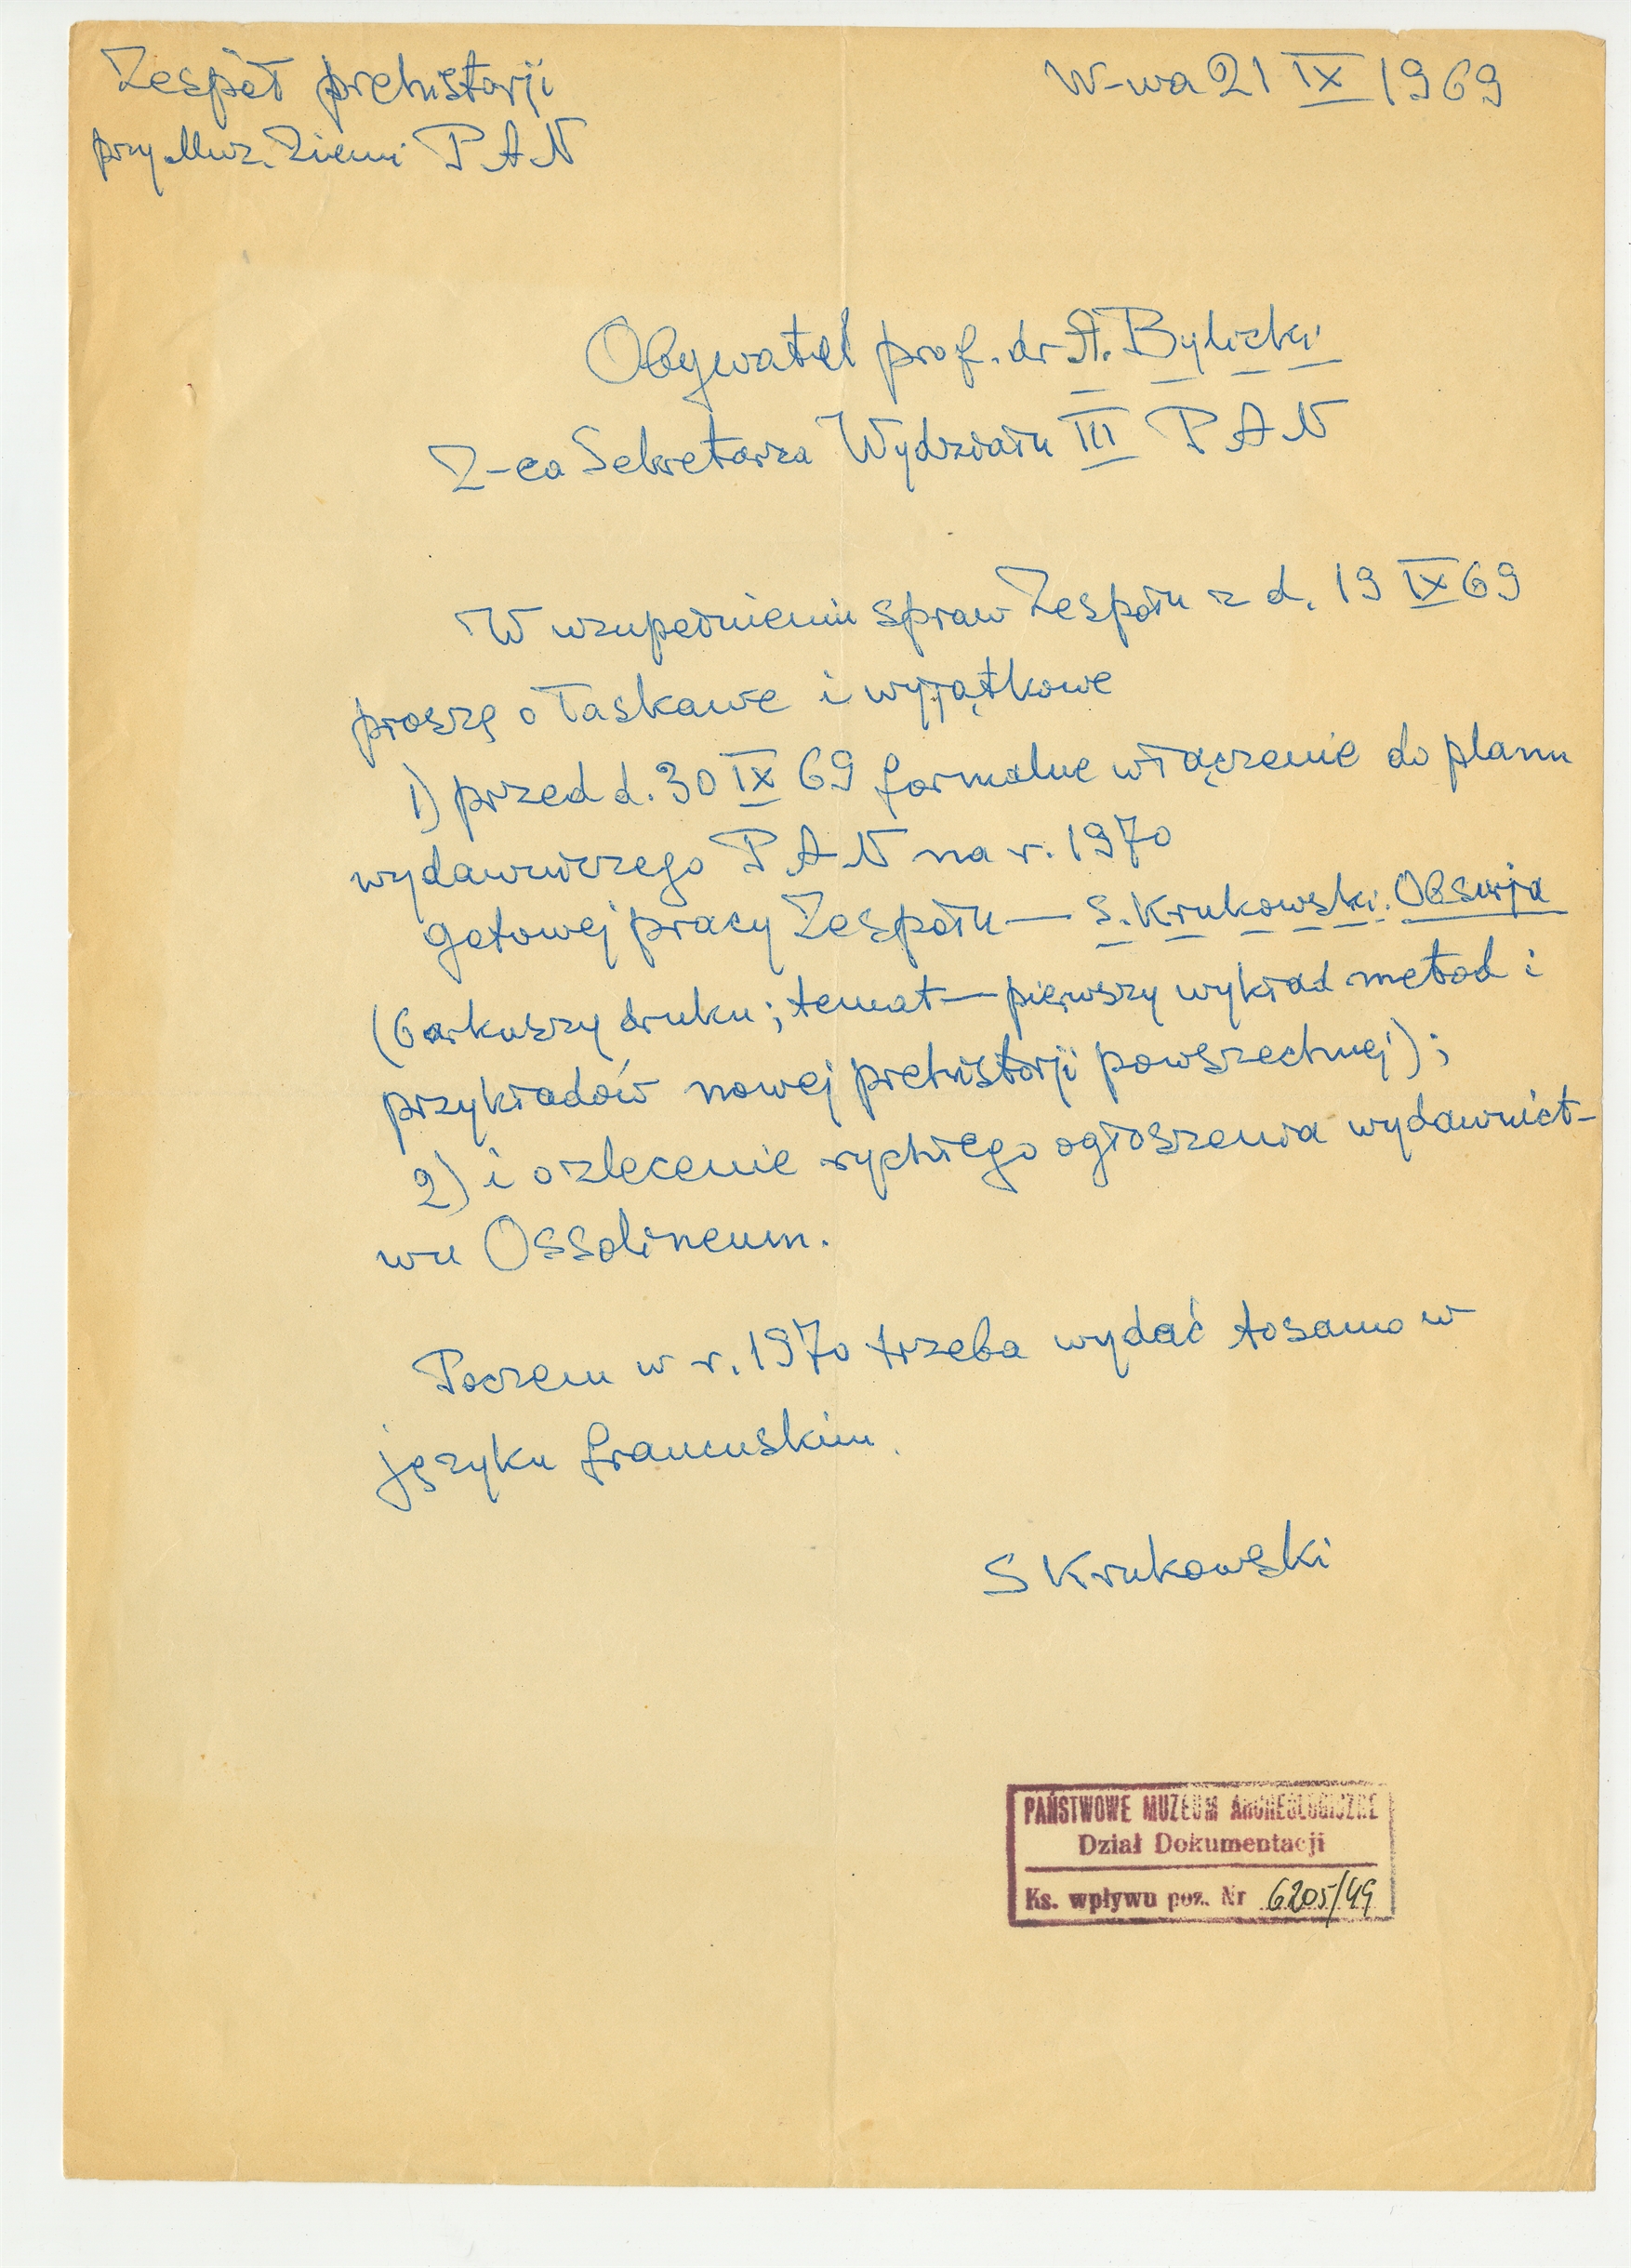 Zespół prehistorji
W-wa 21 IX 1969
przy Muz. Ziemi PAN
Obywatel prof. dr A. Bylicki
Z-ca Sekretarza Wydziału III PAN
W uzupełnieniu spraw Zespołu z d. 19 IX 69
proszę o łaskawe i wyjątkowe
1) przed d. 30 IX 69 formalne włączenie do planu
wydawniczego PAN na r. 1970
gotowej pracy Zespołu — S. Krukowski: Obsurja
(6 arkuszy druku; temat — pierwszy wykład metod i
przykładów nowej prehistorji powszechnej);
2) i o zlecenie rychłego ogłoszenia wydawnict-
wu Ossolineum.
Poczem w r. 1970 trzeba wydać tosamo w
języku francuskim.
S Krukowski
PAŃSTWOWE MUZEUM ARCHEOLOGICZNE
Dział Dokumentacji
Ks. wpływu poz. Nr 6205/49